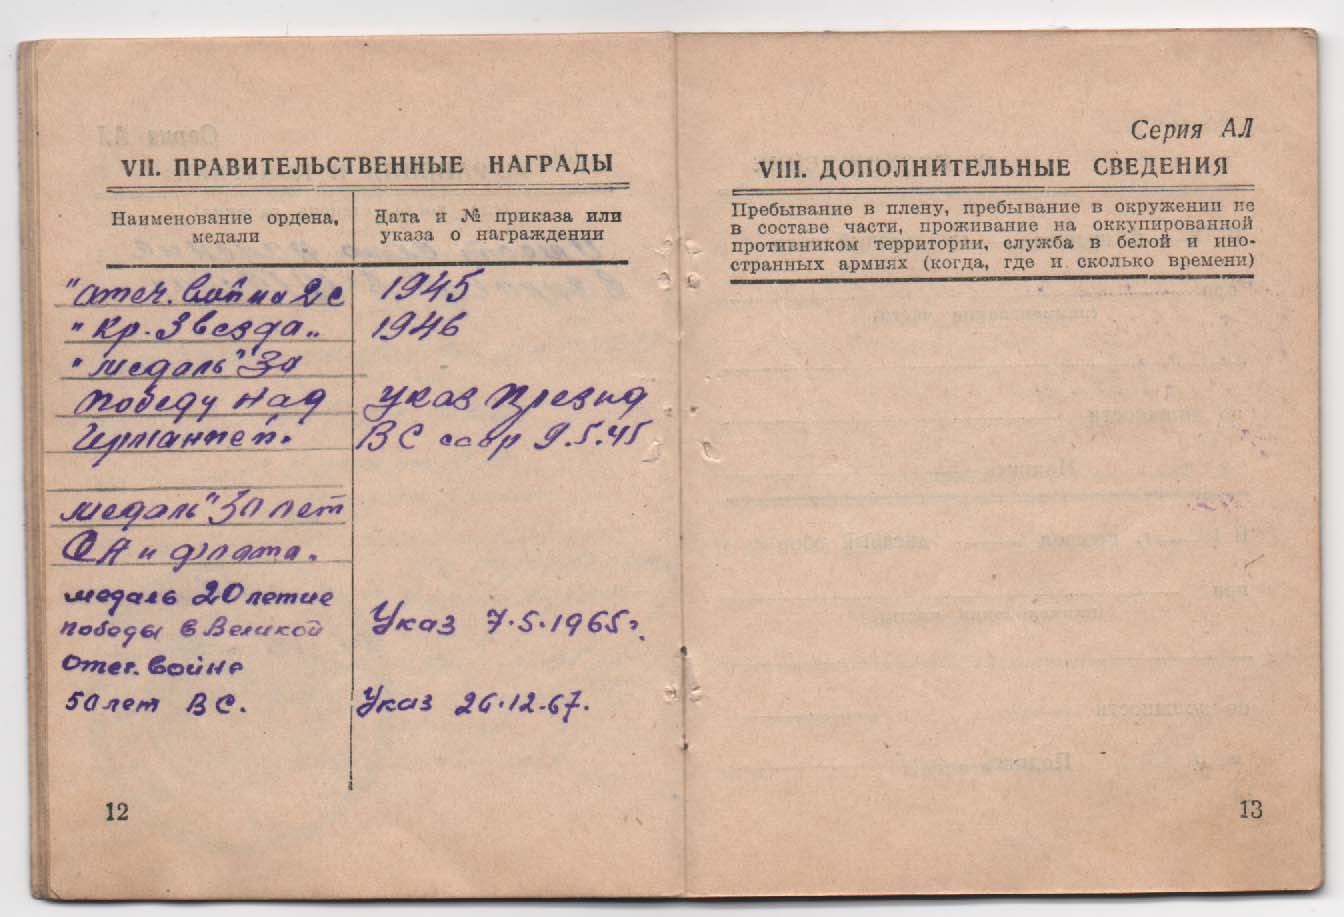 VII. ПРАВИТЕЛЬСТВЕННЫЕ НАГРАДЫ
Наименование ордена, медали
Дата и № приказа или указа о награждении
"Отеч. Война 2 с 1945
"Кр. Звезда" 1946
"медаль" За
Победу над Указ Презид
Германией. ВС ссср 9.5.45
медаль "30 лет
СА и флота.
медаль 20 летие
победы в Великой Указ 7.5.1965г.
Отеч. Войне
50 лет ВС. Указ 26.12.67.
12
Серия АЛ
VIII. ДОПОЛНИТЕЛЬНЫЕ СВЕДЕНИЯ
Пребывание в плену, пребывание в окружении не
в составе части, проживание на оккупированной
противником территории, служба в белой и ино-
странных армиях (когда, где и сколько времени)
13